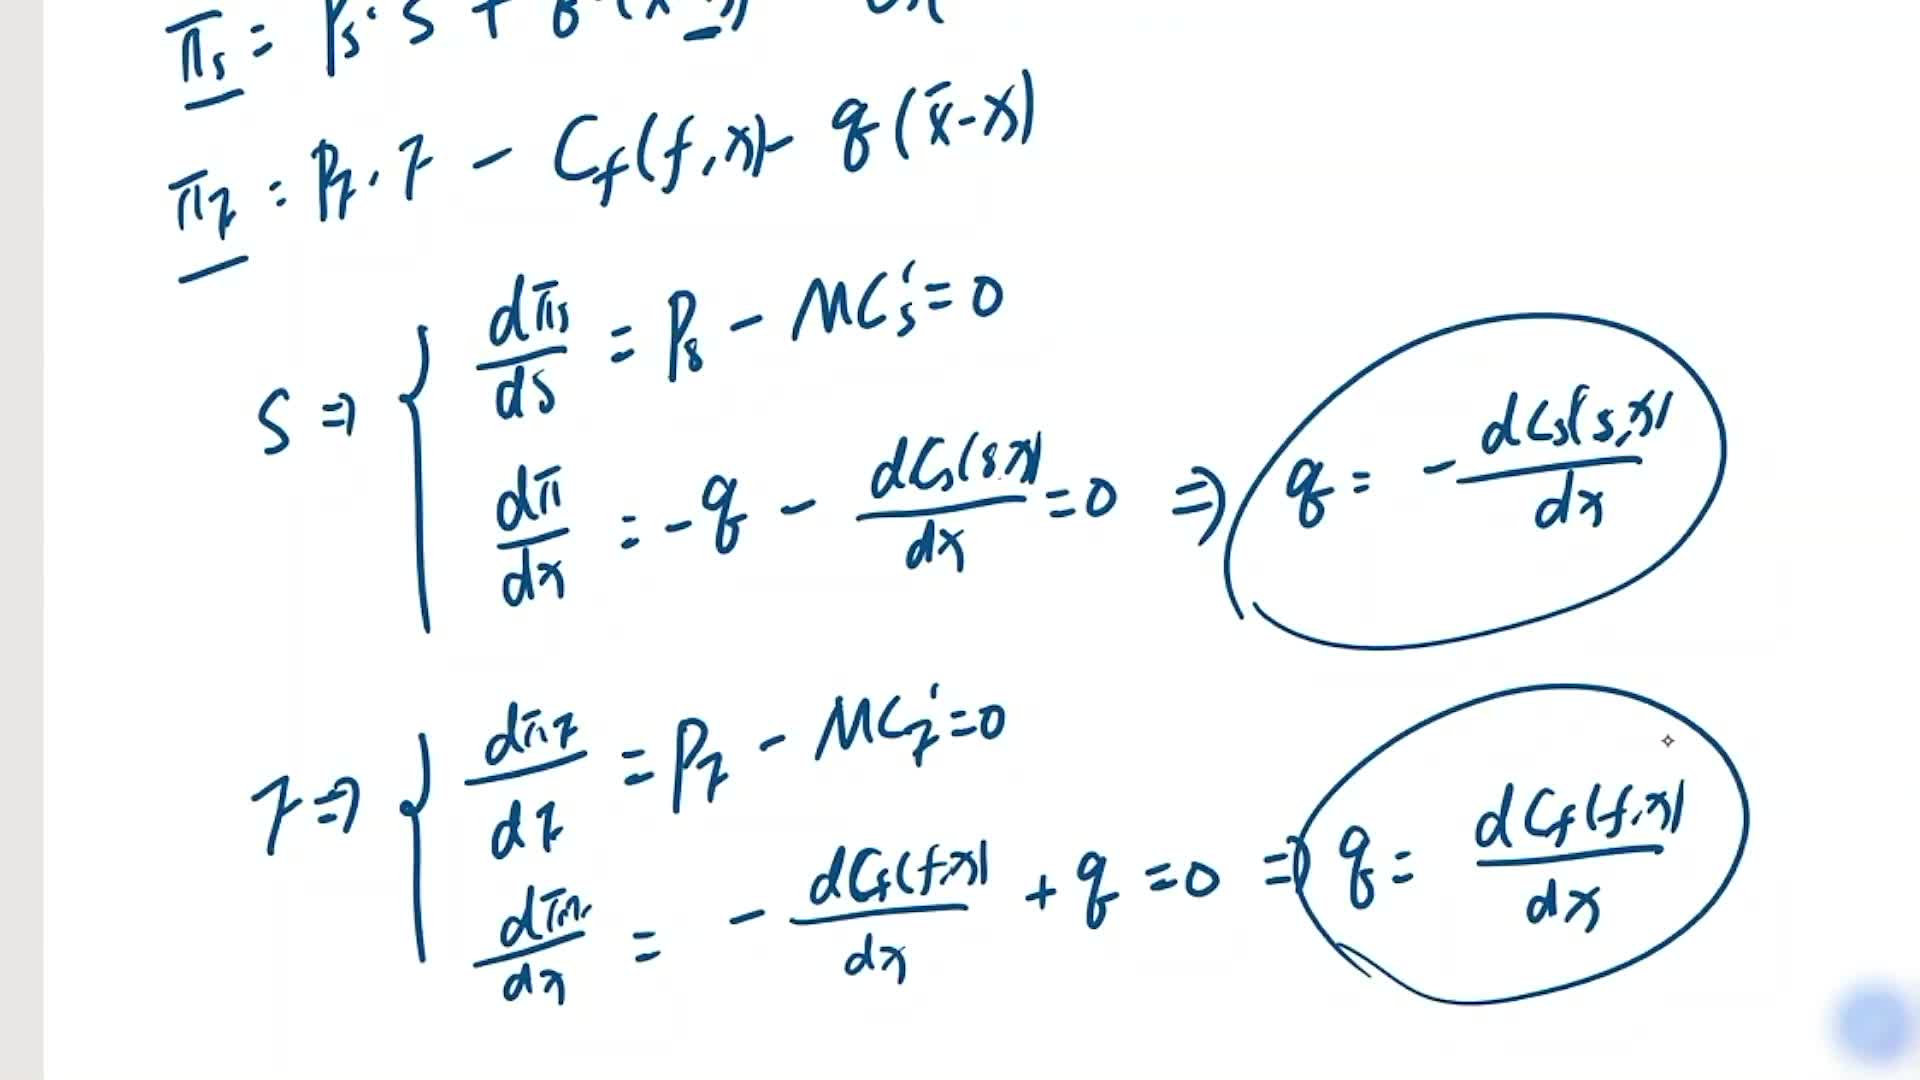 πs = Ps·S + q·(x̄-x) -
πf = Pf·f - Cf(f,x) - q(x̄-x)
S ⇒ { dπs/ds = Ps - MCs' = 0
dπ/dx = -q - dCs(s,x)/dx = 0 ⇒ q = - dCs(s,x)/dx
f ⇒ { dπf/df = Pf - MCf' = 0
dπ/dx = - dCf(f,x)/dx + q = 0 ⇒ q = dCf(f,x)/dx